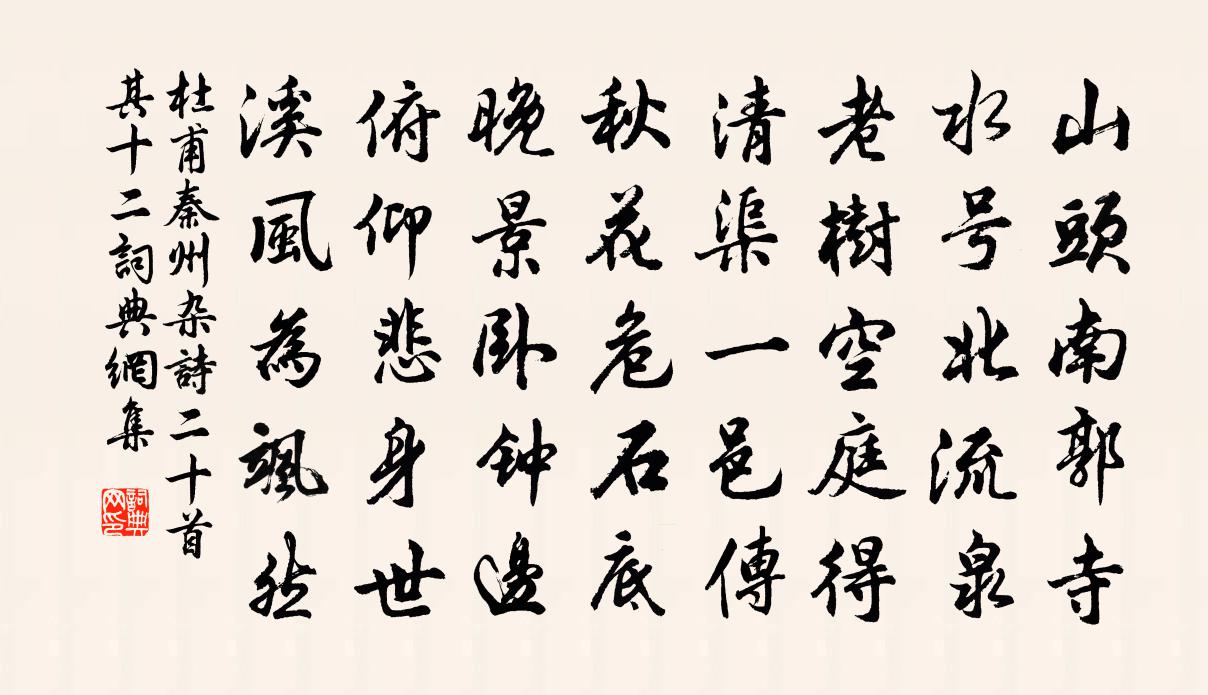 山頭南郭寺
水号北流泉
老樹空庭得
清渠一邑傳
秋花危石底
晚景卧钟邊
俯仰悲身世
溪風為颯然
杜甫秦州杂詩二十首
其十二詞典網集
詞典
网印